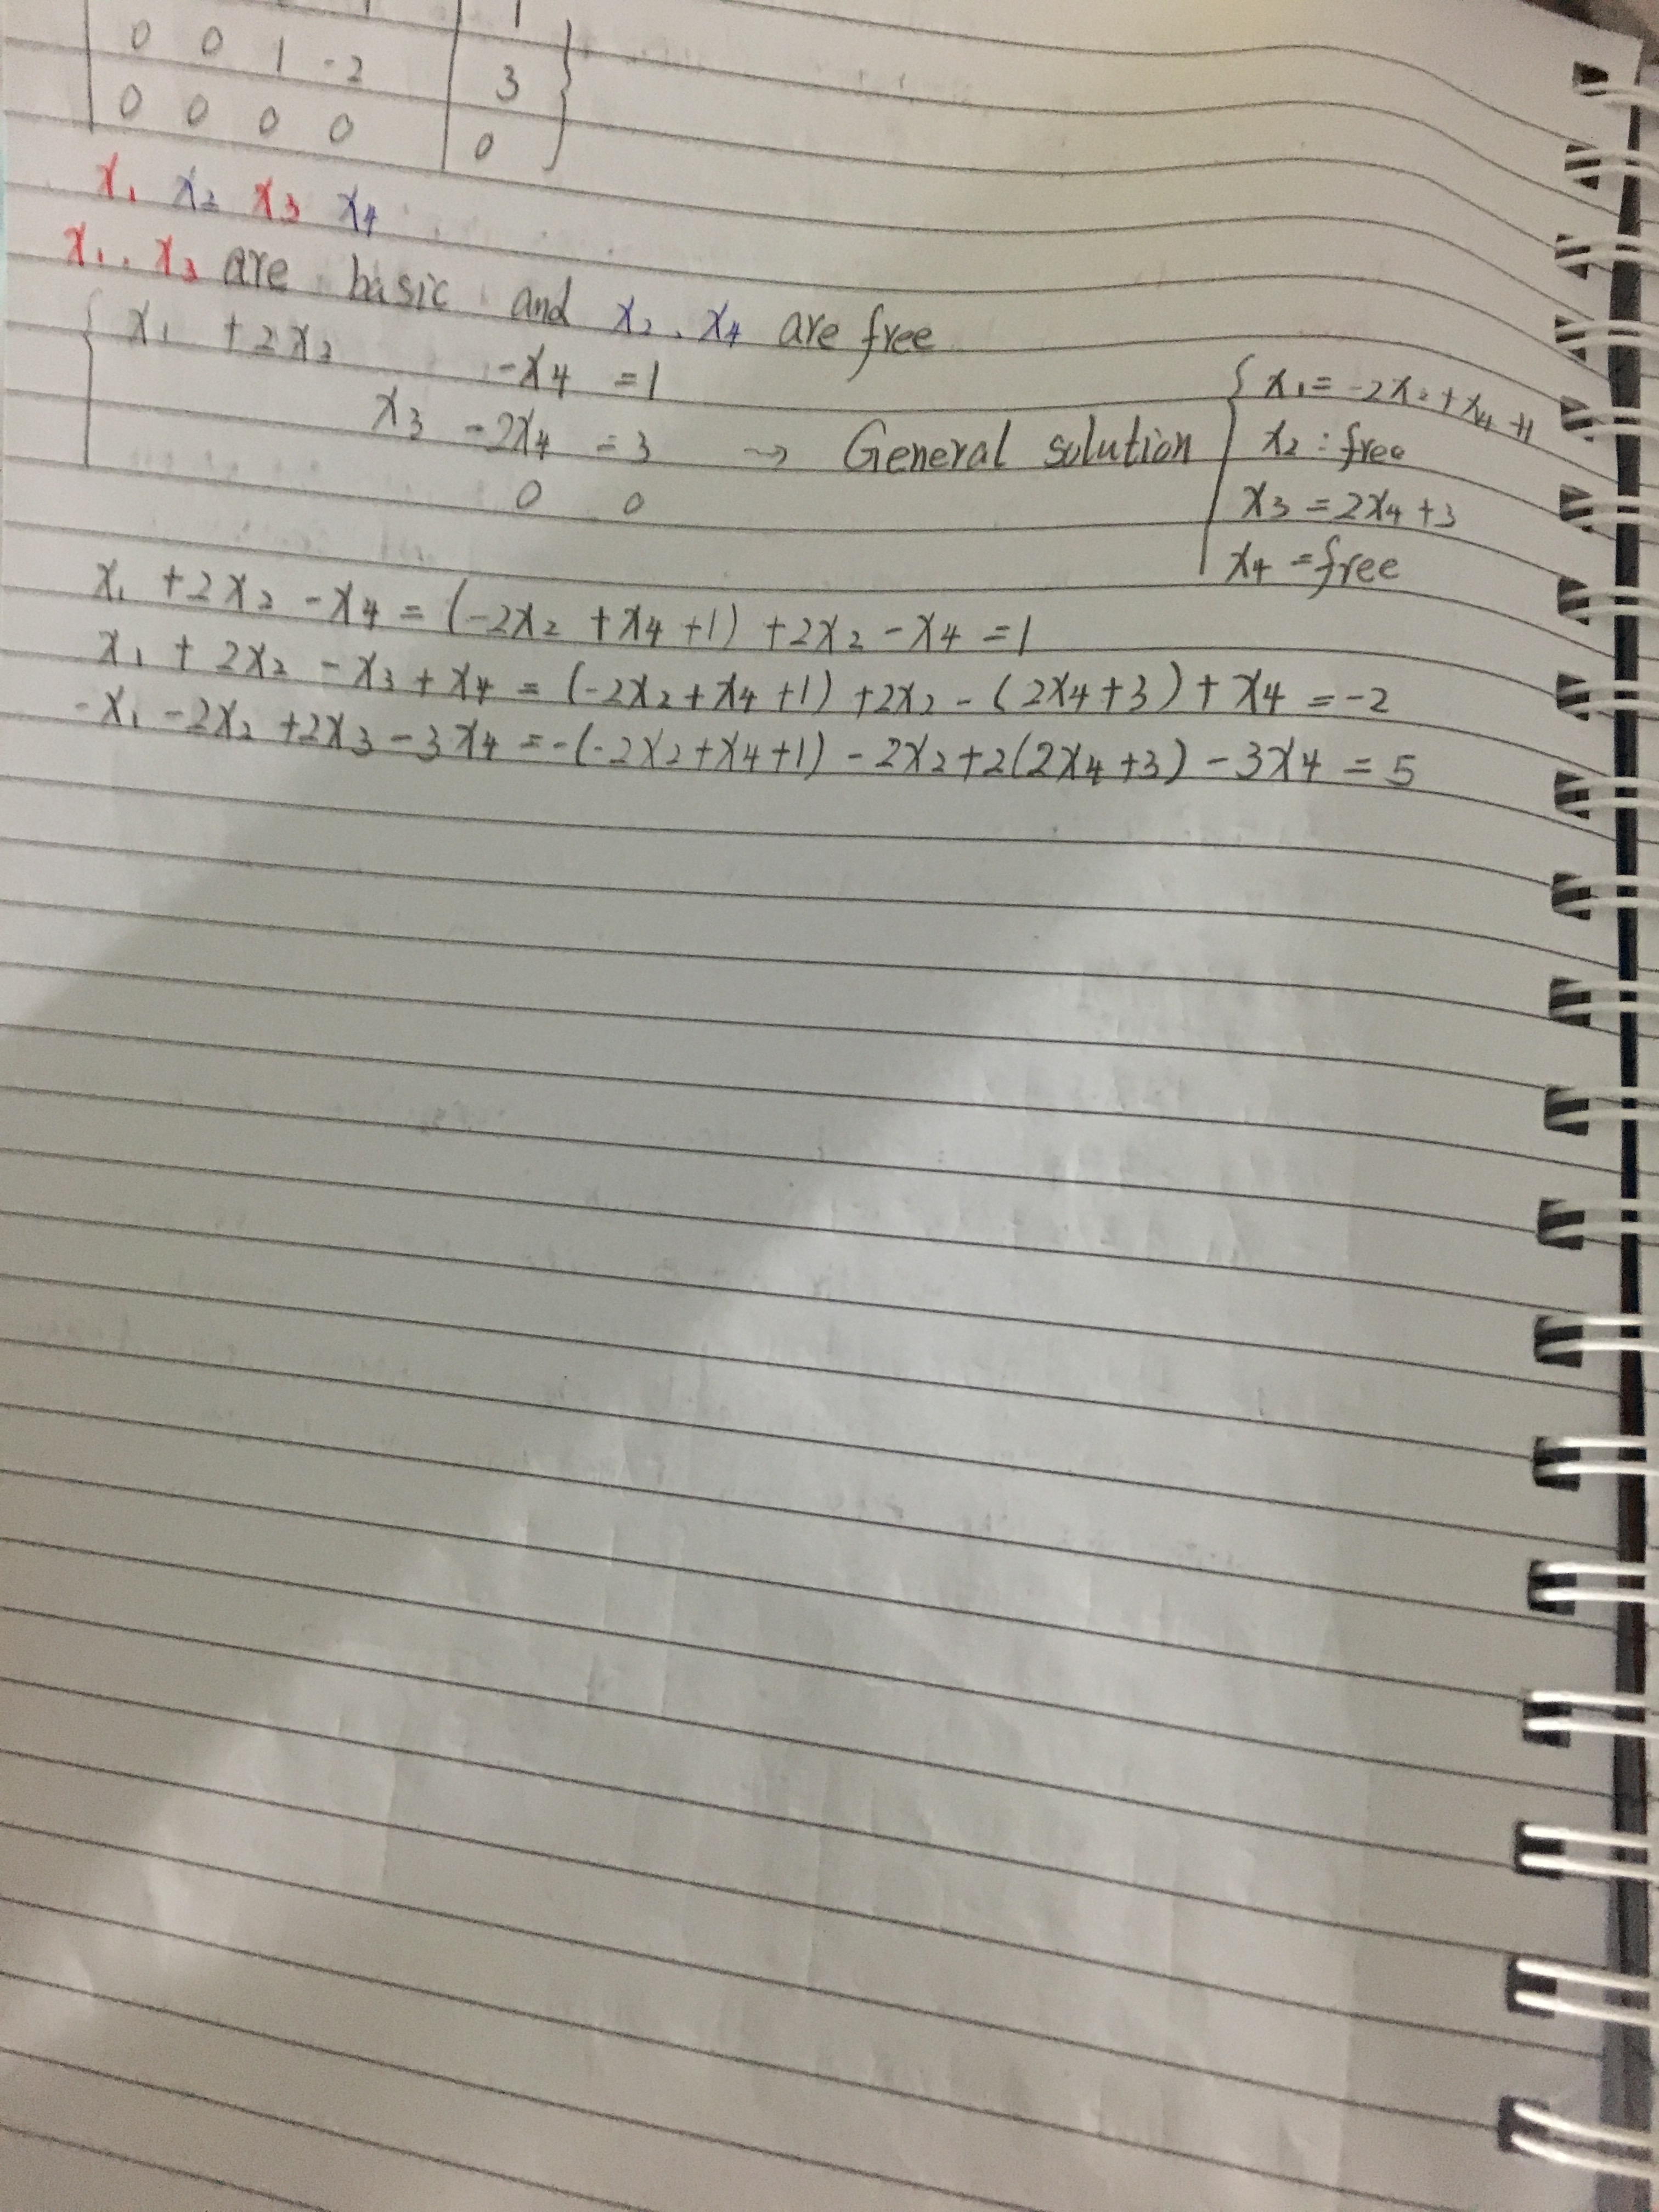 1
0 0 1 -2 3
0 0 0 0 0
x1 x2 x3 x4
x1, x3 are basic and x2, x4 are free
x1 +2x2 -x4 =1
x3 -2x4 =3 → General solution
0 0
x1=-2x2+x4+1
x2:free
x3=2x4+3
x4=free
x1+2x2-x4=(-2x2+x4+1)+2x2-x4=1
x1+2x2-x3+x4=(-2x2+x4+1)+2x2-(2x4+3)+x4=-2
-x1-2x2+2x3-3x4=-(-2x2+x4+1)-2x2+2(2x4+3)-3x4=5